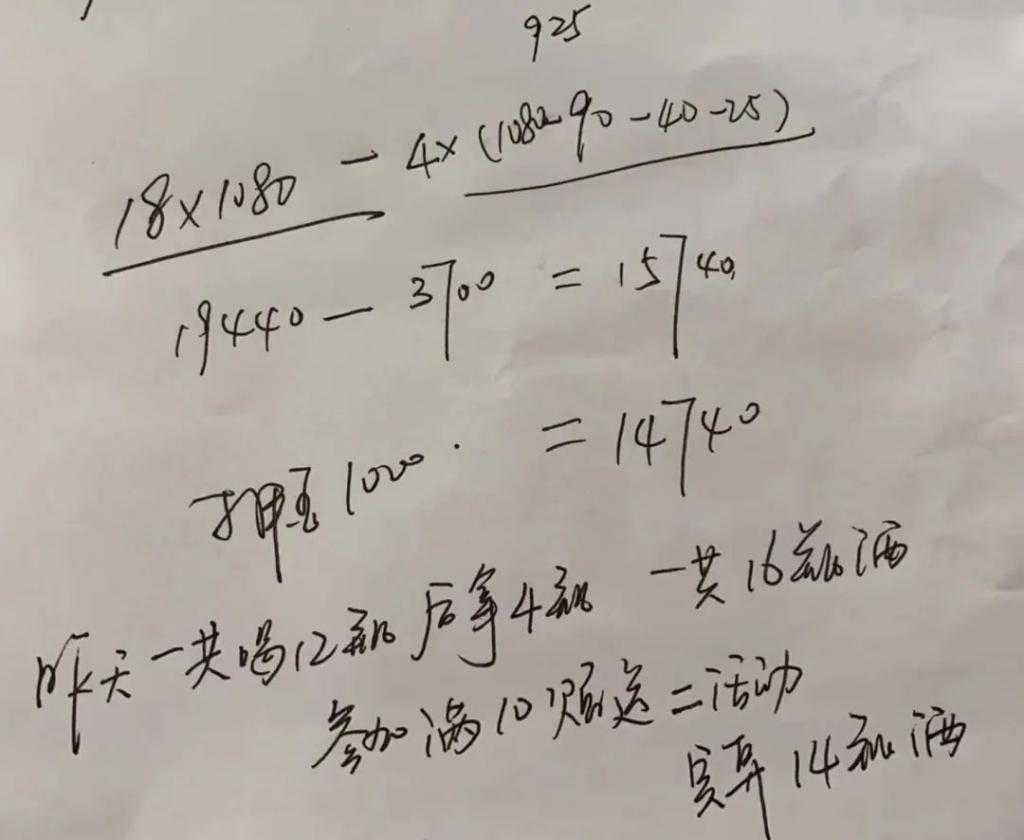 925
18×1080 - 4×(1080-90-40-25)
19440 - 3700 = 15740
押金1000. = 14740
昨天一共喝12瓶后拿4瓶 一共16瓶酒
参加满10赠送二活动
实算14瓶酒